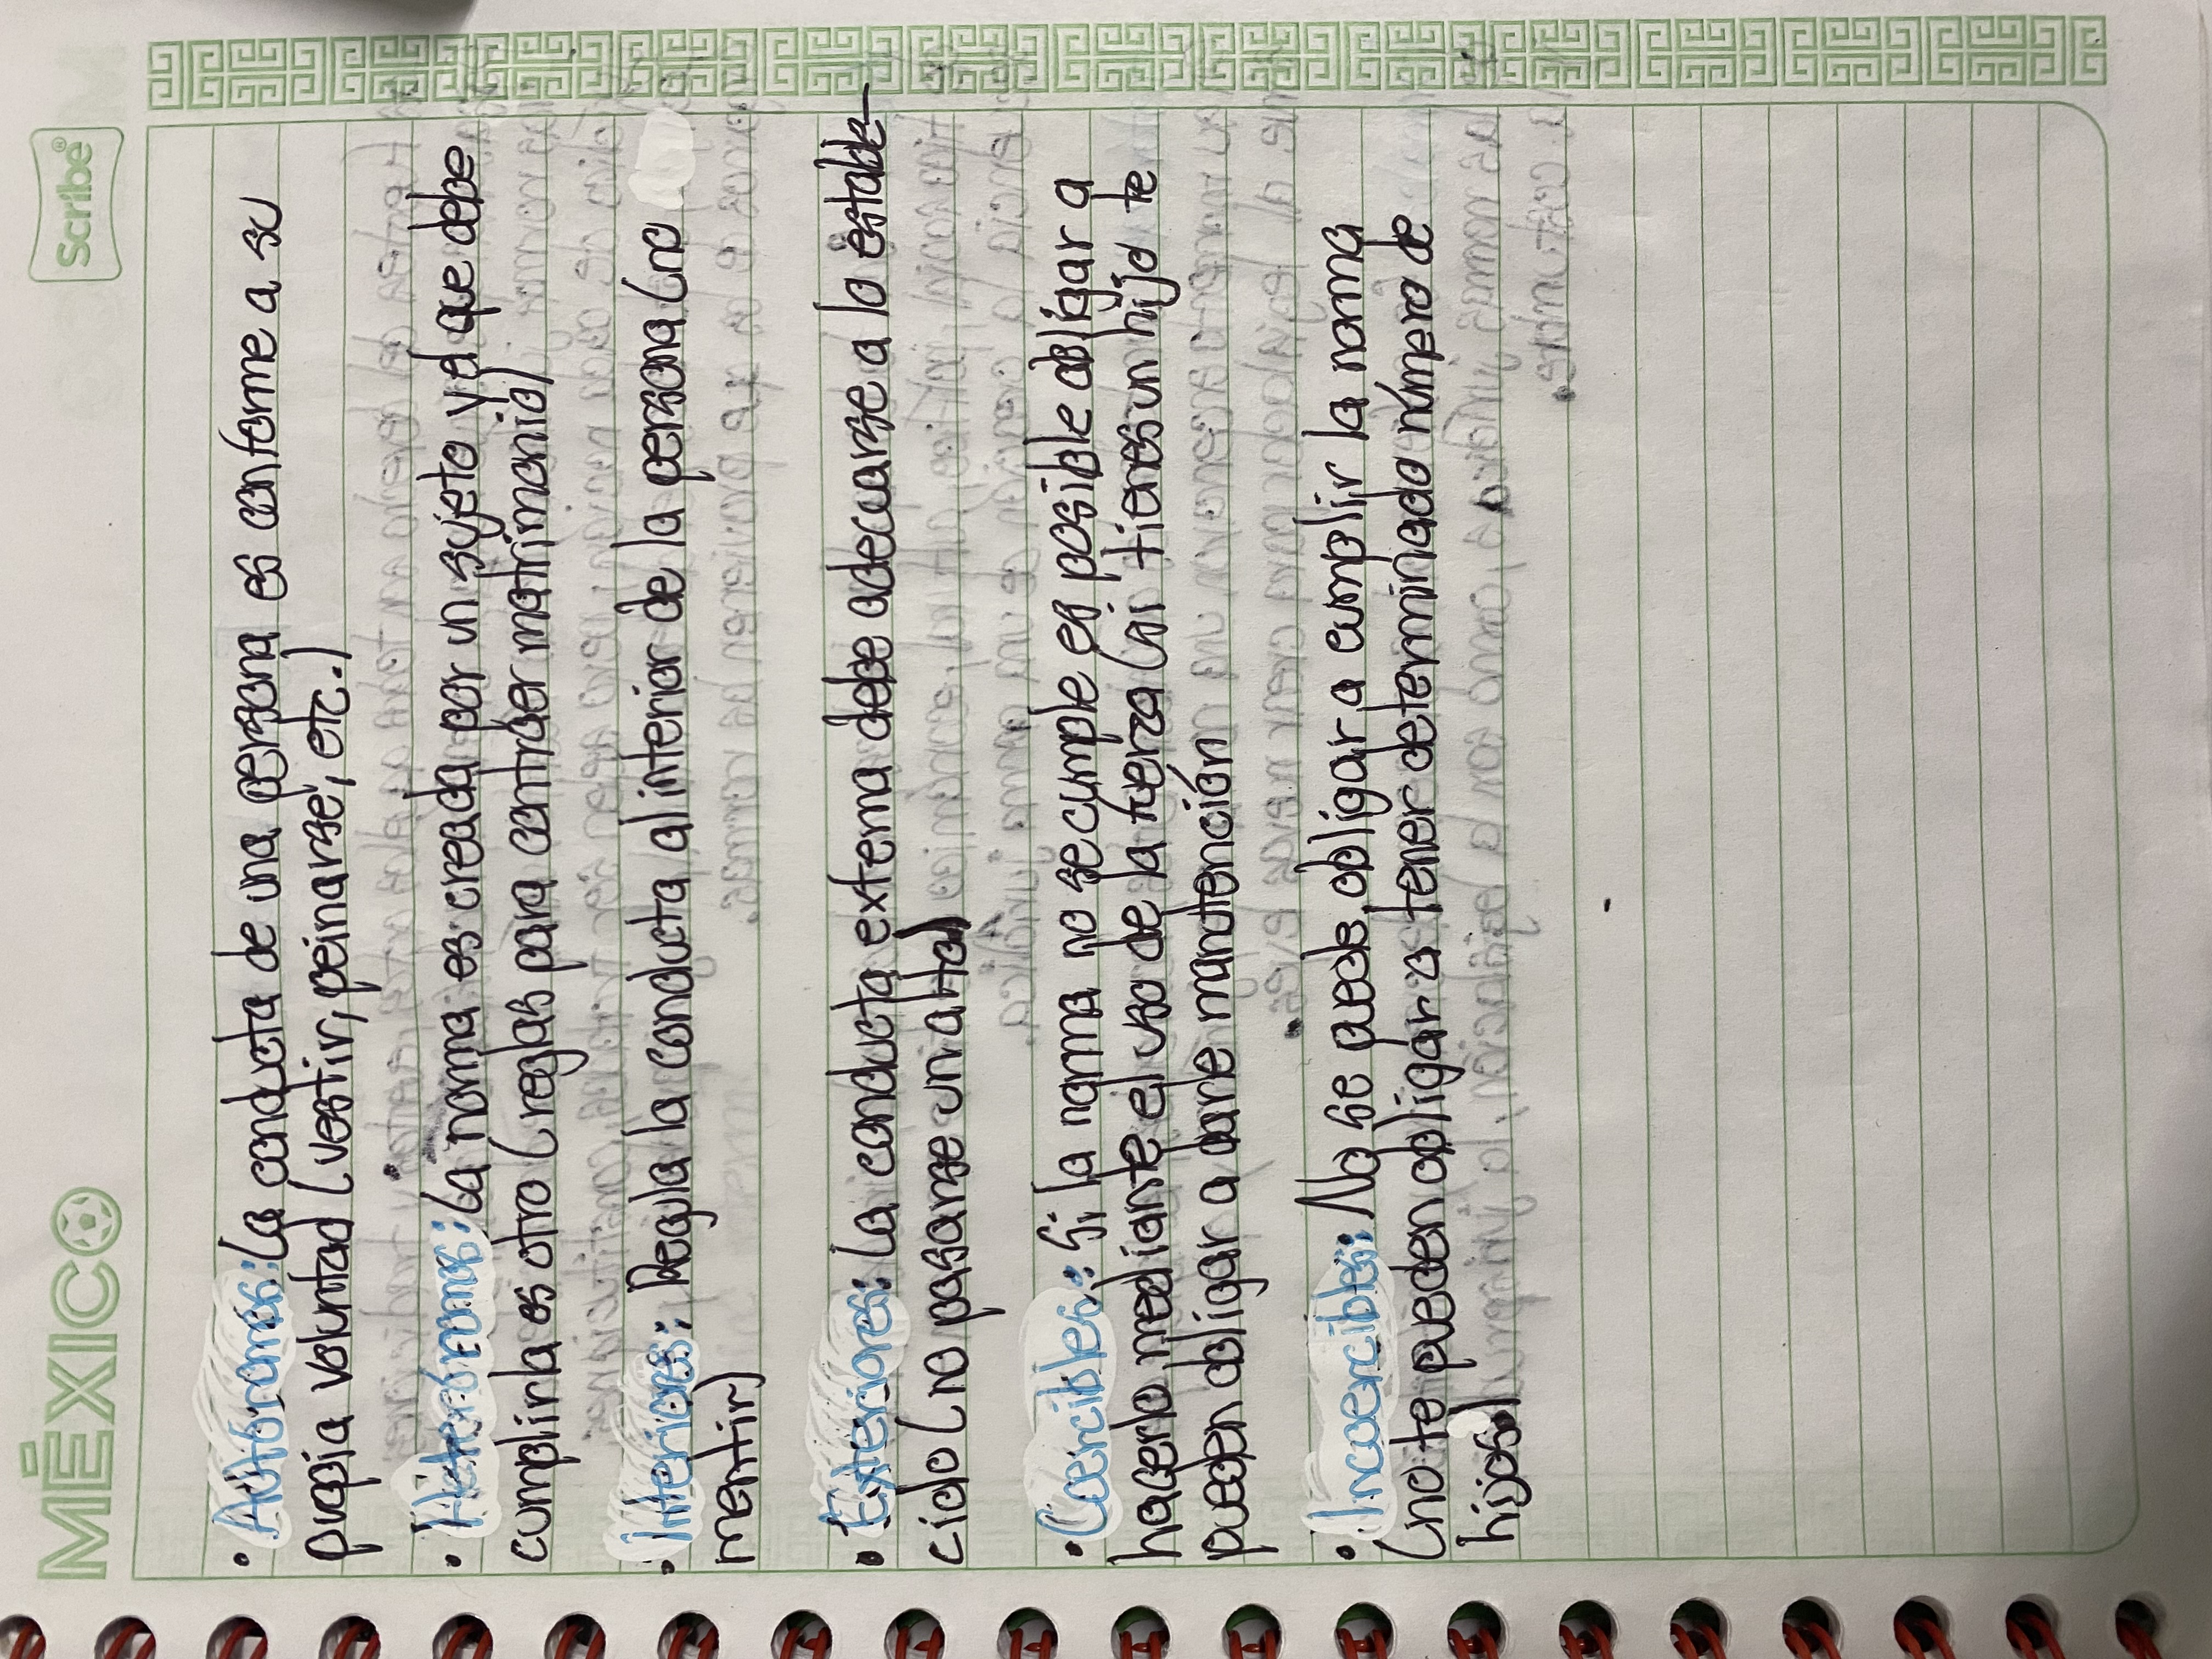 MÉXICO
Scribe®
• Autónomas: La conducta de una persona es conforme a su
propia voluntad (vestir, peinarse, etc.)
• Heterónomas: La norma es creada por un sujeto y el que debe
cumplirla es otro (reglas para contraer matrimonio)
• Interiores: Regula la conducta al interior de la persona (no
mentir)
• Exteriores: La conducta externa debe adecuarse a lo estable-
cido (no pasarse un alto)
• Coercibles: Si la norma no se cumple es posible obligar a
hacerlo mediante el uso de la fuerza (si tienes un hijo te
pueden obligar a darle manutención
• Incoercibles: No se puede obligar a cumplir la norma
(no te pueden obligar a tener determinado número de
hijos)